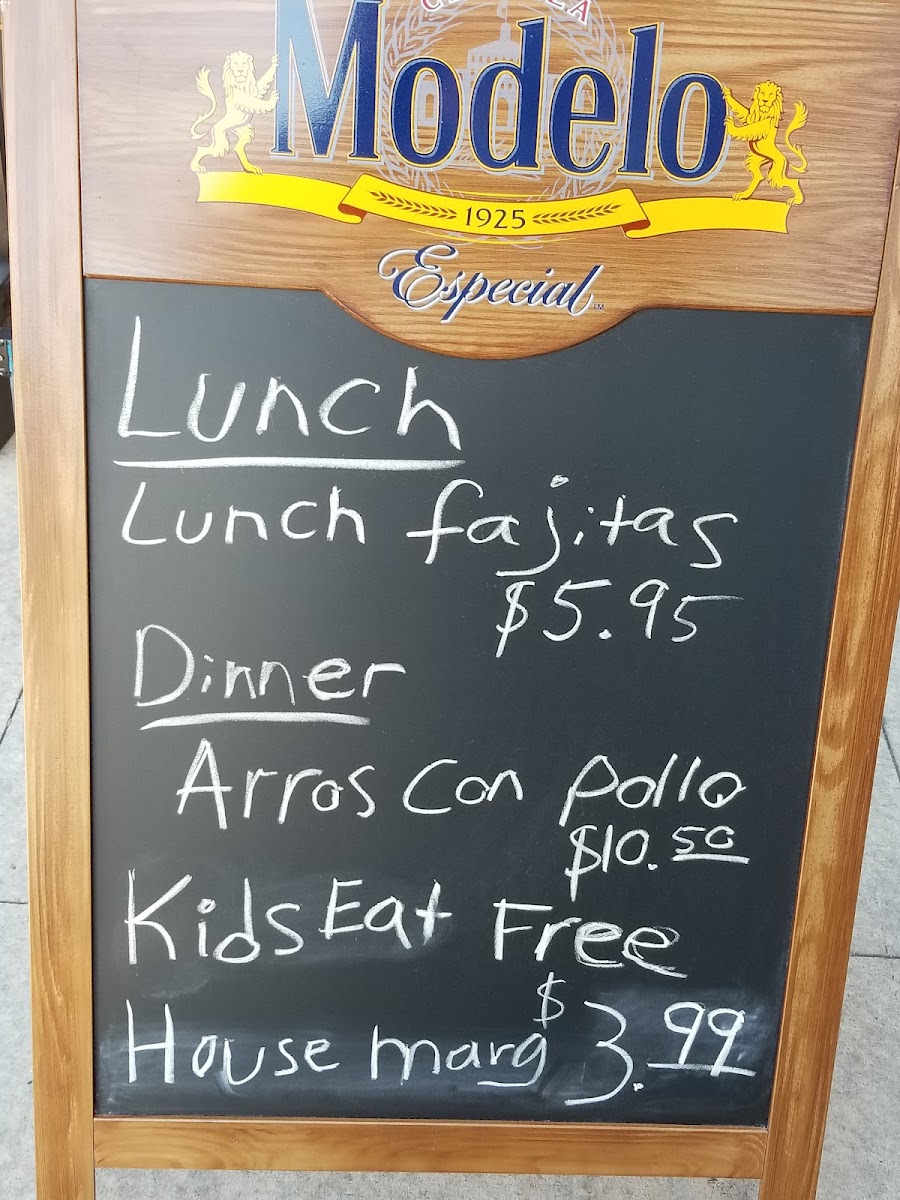 Modelo
1925
Especial
Lunch
Lunch fajitas
$5.95
Dinner
Arros Con pollo
$10.50
Kids Eat Free
House marg $3.99